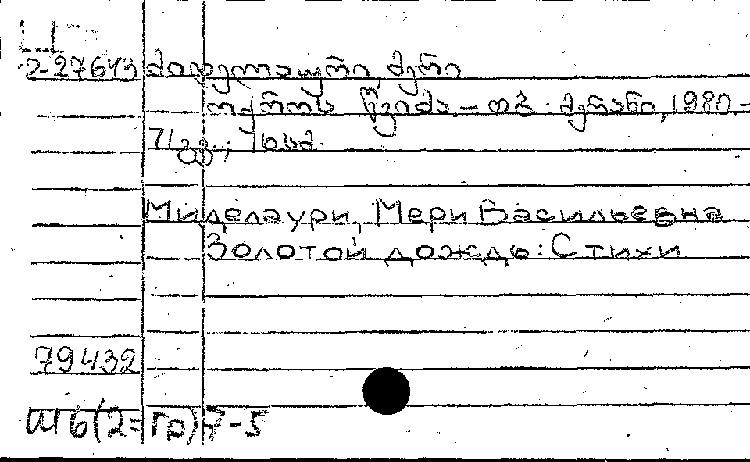 2-27643 მიდელაური, მერი
ოქროს წვიმა. – თბ. მერანი, 1980. –
71 გვ.;
Миделаури, Мери Васильевна
Золотой дождь: Стихи
79432
Ш6(2=Гр)7-5